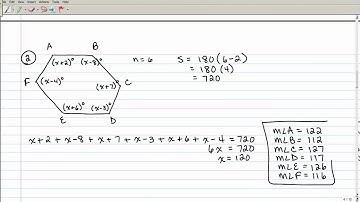 ②
A B
n = 6
S = 180(6-2)
= 180(4)
= 720
(x+2)° (x-8)°
F (x-4)° (x+7)° C
(x+6)° (x-3)°
E D
x+2 + x-8 + x+7 + x-3 + x+6 + x-4 = 720
6x = 720
x = 120
m∠A = 122
m∠B = 112
m∠C = 127
m∠D = 117
m∠E = 126
m∠F = 116